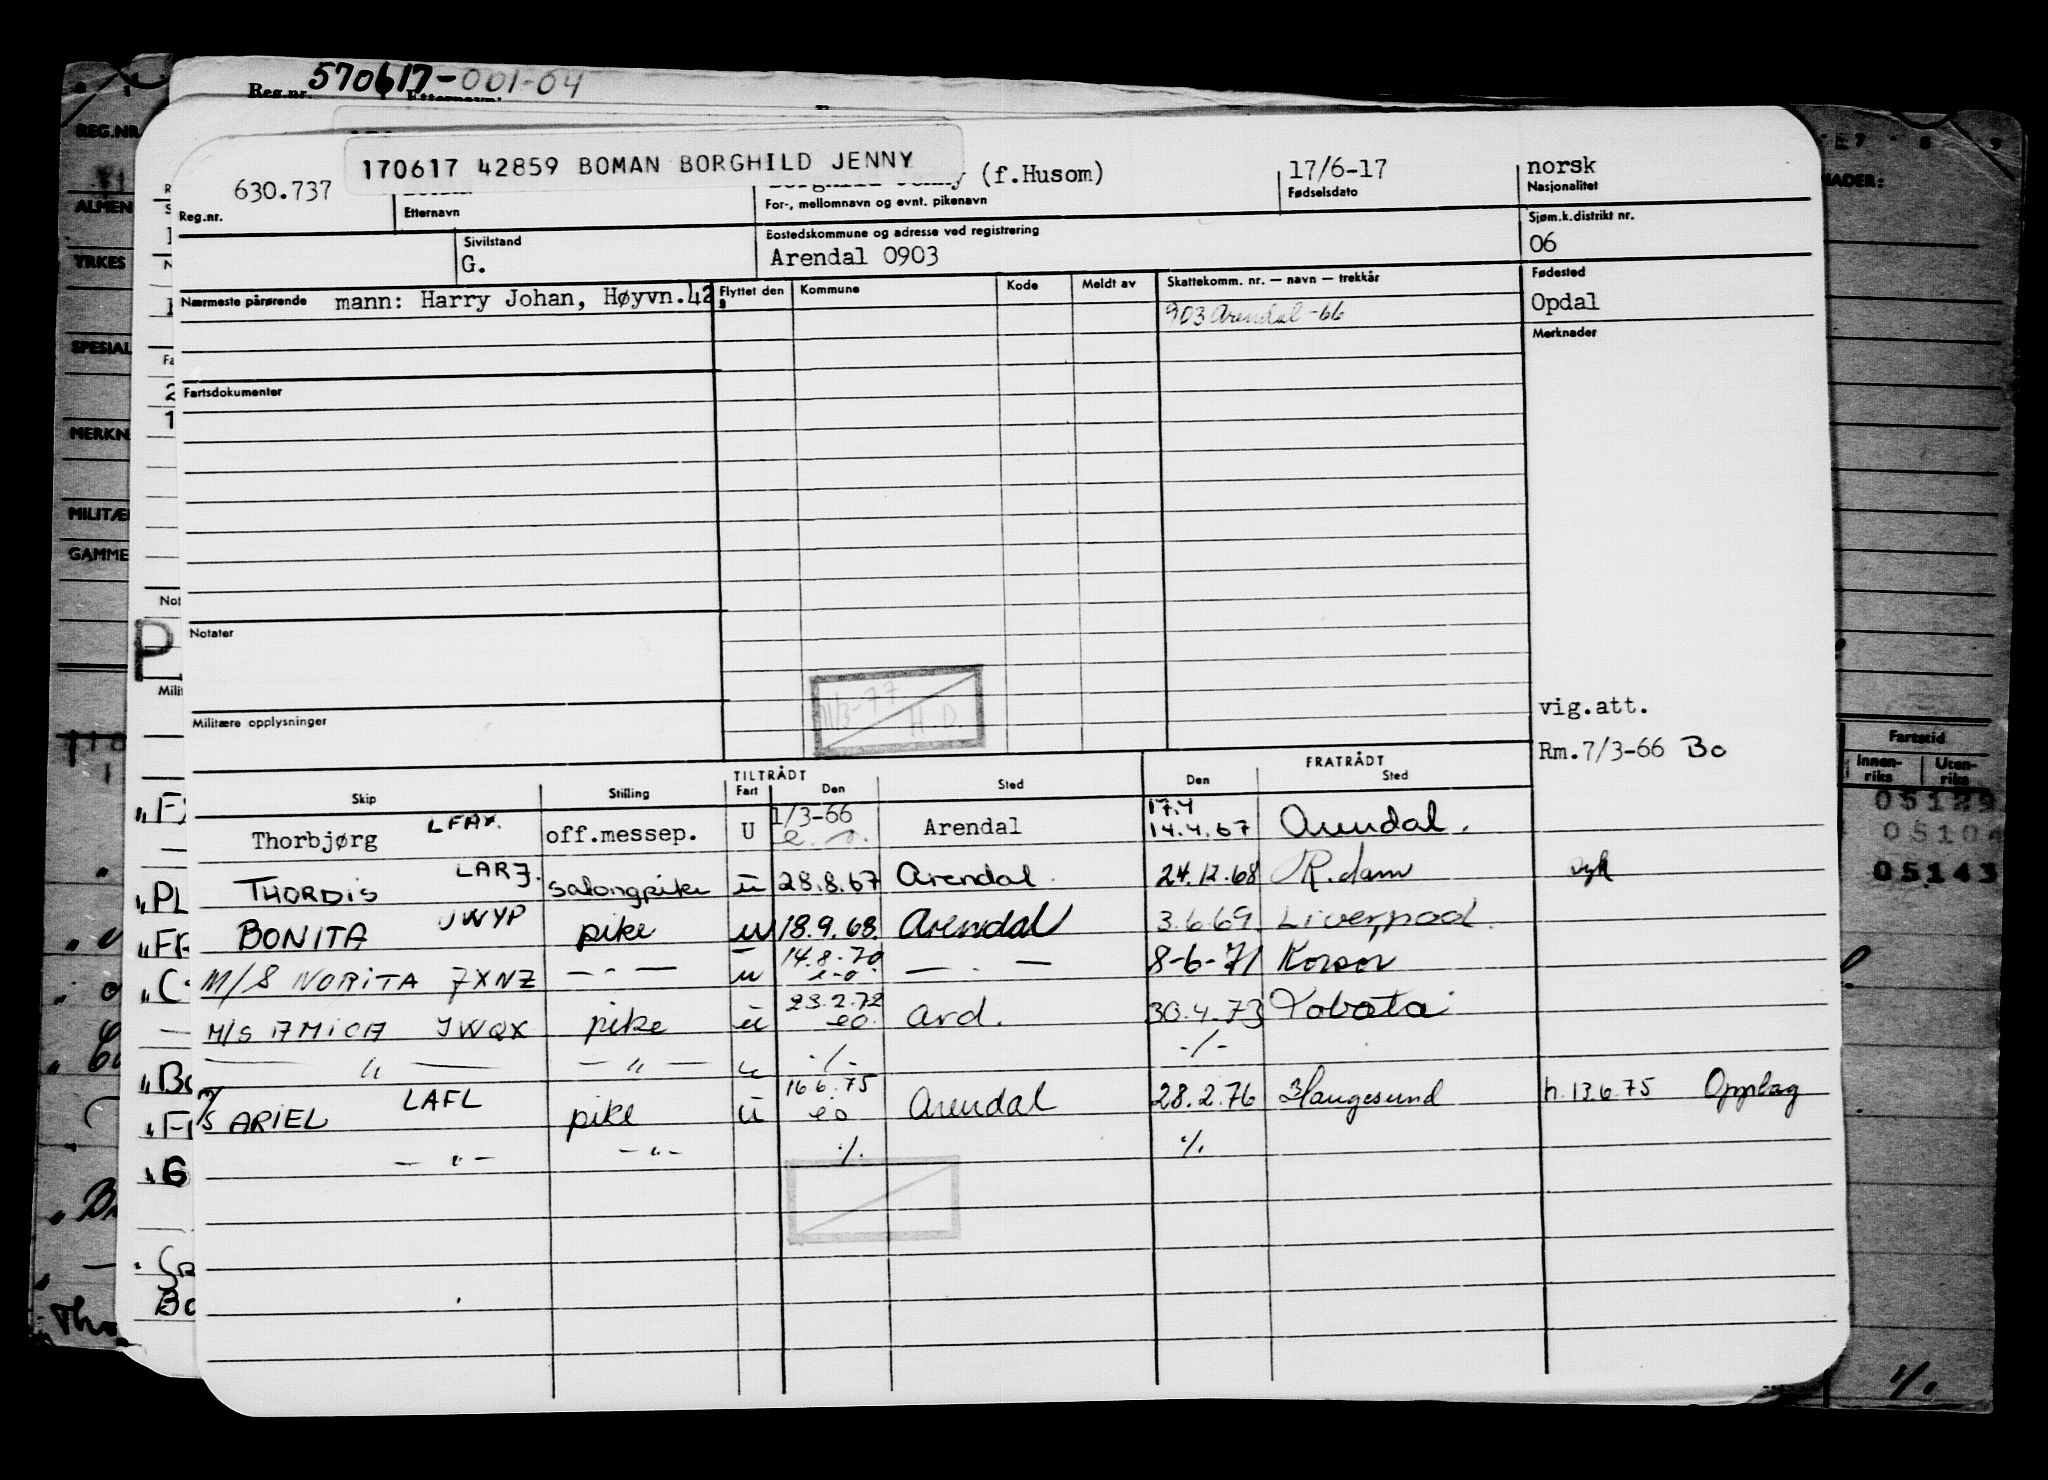 Reg.nr. 570617-001-04
170617 42859 BOMAN BORGHILD JENNY
630.737 (f.Husom) 17/6-17 norsk
Reg.nr. Etternavn For-, mellomnavn og evnt. pikenavn Fødselsdato Nasjonalitet
Sivilstand Bostedskommune og adresse ved registrering Sjøm.k.distrikt nr.
G. Arendal 0903 06
Nærmeste pårørende mann: Harry Johan, Høyvn.42 Flyttet den Kommune Kode Meldt av Skattekomm. nr. — navn — trekkår Fødested
903 Arendal -66 Opdal
Merknader
Fartsdokumenter
Notater
11/3-77 H.D.
Militære opplysninger
vig.att.
Rm.7/3-66 Bo
TILTRÅDT FRATRÅDT
Skip Stilling Fart Den Sted Den Sted
Thorbjørg off.messep. U 1/3-66 Arendal 17.4 14.4.67 Arendal.
THORDIS LARJ. salongpike u 28.8.67 Arendal. 24.12.68 R.dam
BONITA JWYP pike u 18.9.68. Arendal 3.6.69. Liverpool.
M/S NORITA JXNZ — . — u 14.8.70 e.o. — . — 8-6-71 Korsør
M/S AMICA JWQX pike u 23.2.72 eo. Ard. 30.4.73 Tobata
— " — — " — " -/- -/-
M/S ARIEL LAFL pike u 16.6.75 eo Arendal 28.2.76 Haugesund h. 13.6.75 Opplag
— " — — " — ./. ./.
REG.NR
ALMEN
YRKES
SPESIAL
MERKN
MILITÆ
GAMME
NADER:
Fartstid
Innen-riks Uten-riks
05129
05104
05143
./.